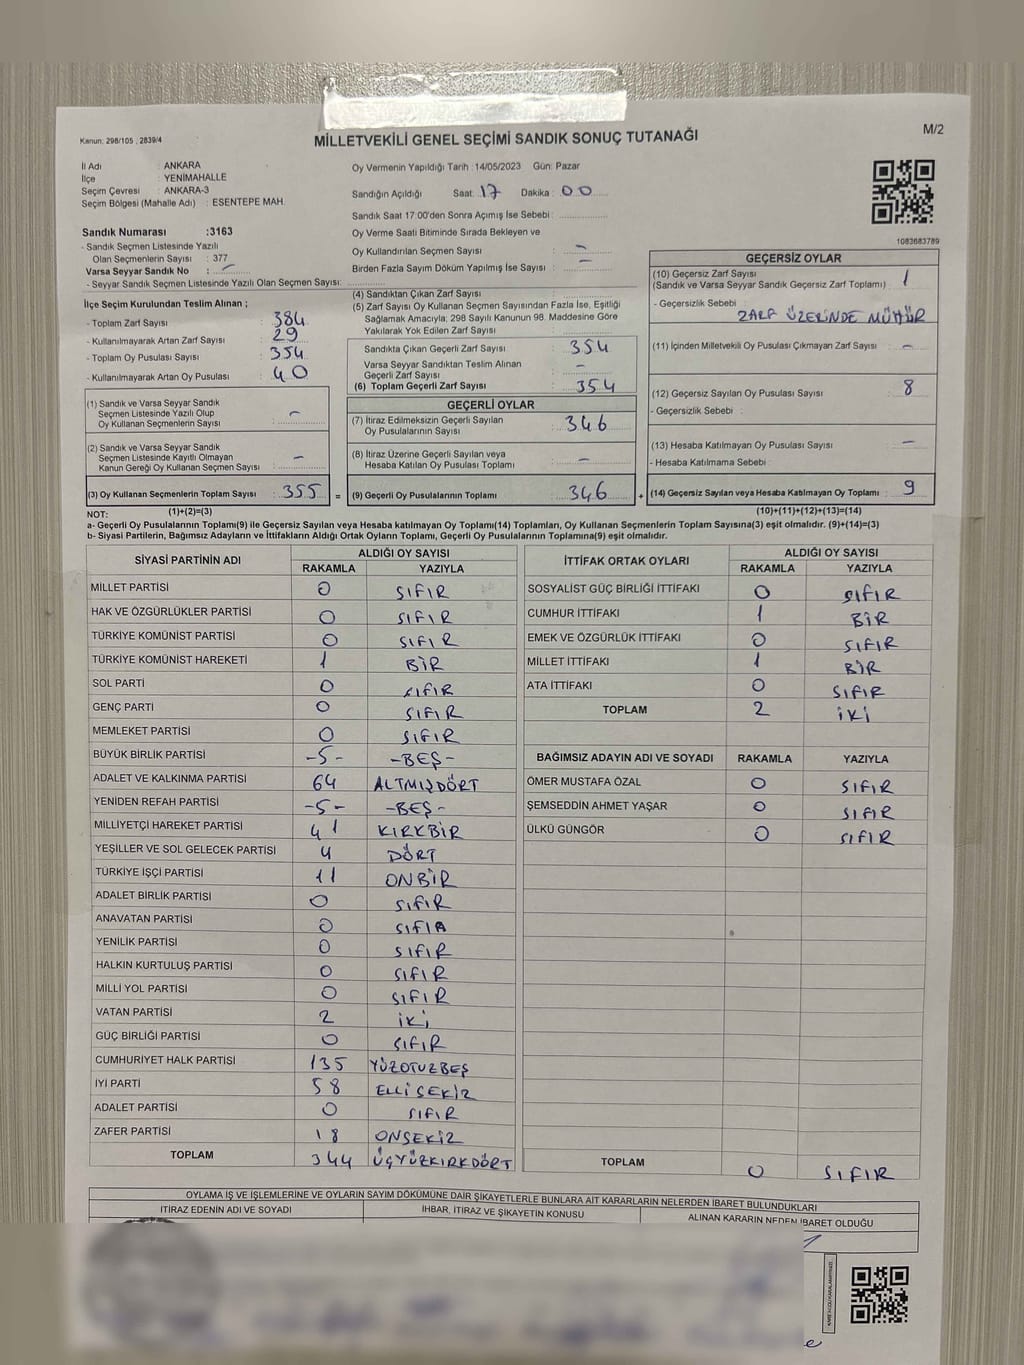 Kanun: 298/105 ; 2839/4
MİLLETVEKİLİ GENEL SEÇİMİ SANDIK SONUÇ TUTANAĞI
M/2
İl Adı : ANKARA
İlçe : YENİMAHALLE
Seçim Çevresi : ANKARA-3
Seçim Bölgesi (Mahalle Adı) : ESENTEPE MAH.
Oy Vermenin Yapıldığı Tarih : 14/05/2023 Gün: Pazar
Sandığın Açıldığı Saat: 17 Dakika : 00
Sandık Saat 17:00'den Sonra Açımış İse Sebebi :
Oy Verme Saati Bitiminde Sırada Bekleyen ve
Oy Kullandırılan Seçmen Sayısı : -
Birden Fazla Sayım Döküm Yapılmış İse Sayısı : -
1083683789
Sandık Numarası :3163
- Sandık Seçmen Listesinde Yazılı
Olan Seçmenlerin Sayısı : 377
Varsa Seyyar Sandık No : -
- Seyyar Sandık Seçmen Listesinde Yazılı Olan Seçmen Sayısı:
İlçe Seçim Kurulundan Teslim Alınan ;
- Toplam Zarf Sayısı : 384
- Kullanılmayarak Artan Zarf Sayısı : 29
- Toplam Oy Pusulası Sayısı : 354
- Kullanılmayarak Artan Oy Pusulası : 40
(1) Sandık ve Varsa Seyyar Sandık
Seçmen Listesinde Yazılı Olup
Oy Kullanan Seçmenlerin Sayısı : -
(2) Sandık ve Varsa Seyyar Sandık
Seçmen Listesinde Kayıtlı Olmayan
Kanun Gereği Oy Kullanan Seçmen Sayısı : -
(3) Oy Kullanan Seçmenlerin Toplam Sayısı : 355 =
(1)+(2)=(3)
(4) Sandıktan Çıkan Zarf Sayısı :
(5) Zarf Sayısı Oy Kullanan Seçmen Sayısından Fazla İse, Eşitliği
Sağlamak Amacıyla; 298 Sayılı Kanunun 98. Maddesine Göre
Yakılarak Yok Edilen Zarf Sayısı :
Sandıkta Çıkan Geçerli Zarf Sayısı : 354
Varsa Seyyar Sandıktan Teslim Alınan
Geçerli Zarf Sayısı : -
(6) Toplam Geçerli Zarf Sayısı : 354
GEÇERLİ OYLAR
(7) İtiraz Edilmeksizin Geçerli Sayılan
Oy Pusulalarının Sayısı : 346
(8) İtiraz Üzerine Geçerli Sayılan veya
Hesaba Katılan Oy Pusulası Toplamı : -
(9) Geçerli Oy Pusulalarının Toplamı : 346 +
GEÇERSİZ OYLAR
(10) Geçersiz Zarf Sayısı : 1
(Sandık ve Varsa Seyyar Sandık Geçersiz Zarf Toplamı)
- Geçersizlik Sebebi :
ZARF ÜZERİNDE MÜHÜR
(11) İçinden Milletvekili Oy Pusulası Çıkmayan Zarf Sayısı : -
(12) Geçersiz Sayılan Oy Pusulası Sayısı : 8
- Geçersizlik Sebebi :
(13) Hesaba Katılmayan Oy Pusulası Sayısı : -
- Hesaba Katılmama Sebebi :
(14) Geçersiz Sayılan veya Hesaba Katılmayan Oy Toplamı : 9
(10)+(11)+(12)+(13)=(14)
NOT:
a- Geçerli Oy Pusulalarının Toplamı(9) ile Geçersiz Sayılan veya Hesaba katılmayan Oy Toplamı(14) Toplamları, Oy Kullanan Seçmenlerin Toplam Sayısına(3) eşit olmalıdır. (9)+(14)=(3)
b- Siyasi Partilerin, Bağımsız Adayların ve İttifakların Aldığı Ortak Oyların Toplamı, Geçerli Oy Pusulalarının Toplamına(9) eşit olmalıdır.
SİYASİ PARTİNİN ADI ALDIĞI OY SAYISI
RAKAMLA YAZIYLA
MİLLET PARTİSİ 0 SIFIR
HAK VE ÖZGÜRLÜKLER PARTİSİ 0 SIFIR
TÜRKİYE KOMÜNİST PARTİSİ 0 SIFIR
TÜRKİYE KOMÜNİST HAREKETİ 1 BİR
SOL PARTİ 0 SIFIR
GENÇ PARTİ 0 SIFIR
MEMLEKET PARTİSİ 0 SIFIR
BÜYÜK BİRLİK PARTİSİ -5- -BEŞ-
ADALET VE KALKINMA PARTİSİ 64 ALTMIŞDÖRT
YENİDEN REFAH PARTİSİ -5- -BEŞ-
MİLLİYETÇİ HAREKET PARTİSİ 41 KIRKBİR
YEŞİLLER VE SOL GELECEK PARTİSİ 4 DÖRT
TÜRKİYE İŞÇİ PARTİSİ 11 ONBİR
ADALET BİRLİK PARTİSİ 0 SIFIR
ANAVATAN PARTİSİ 0 SIFIR
YENİLİK PARTİSİ 0 SIFIR
HALKIN KURTULUŞ PARTİSİ 0 SIFIR
MİLLİ YOL PARTİSİ 0 SIFIR
VATAN PARTİSİ 2 İKİ
GÜÇ BİRLİĞİ PARTİSİ 0 SIFIR
CUMHURİYET HALK PARTİSİ 135 YÜZOTUZBEŞ
İYİ PARTİ 58 ELLİSEKİZ
ADALET PARTİSİ 0 SIFIR
ZAFER PARTİSİ 18 ONSEKİZ
TOPLAM 344 ÜÇYÜZKIRKDÖRT
İTTİFAK ORTAK OYLARI ALDIĞI OY SAYISI
RAKAMLA YAZIYLA
SOSYALİST GÜÇ BİRLİĞİ İTTİFAKI 0 SIFIR
CUMHUR İTTİFAKI 1 BİR
EMEK VE ÖZGÜRLÜK İTTİFAKI 0 SIFIR
MİLLET İTTİFAKI 1 BİR
ATA İTTİFAKI 0 SIFIR
TOPLAM 2 İKİ
BAĞIMSIZ ADAYIN ADI VE SOYADI RAKAMLA YAZIYLA
ÖMER MUSTAFA ÖZAL 0 SIFIR
ŞEMSEDDİN AHMET YAŞAR 0 SIFIR
ÜLKÜ GÜNGÖR 0 SIFIR
TOPLAM 0 SIFIR
OYLAMA İŞ VE İŞLEMLERİNE VE OYLARIN SAYIM DÖKÜMÜNE DAİR ŞİKAYETLERLE BUNLARA AİT KARARLARIN NELERDEN İBARET BULUNDUKLARI
İTİRAZ EDENİN ADI VE SOYADI İHBAR, İTİRAZ VE ŞİKAYETİN KONUSU ALINAN KARARIN NEDEN İBARET OLDUĞU